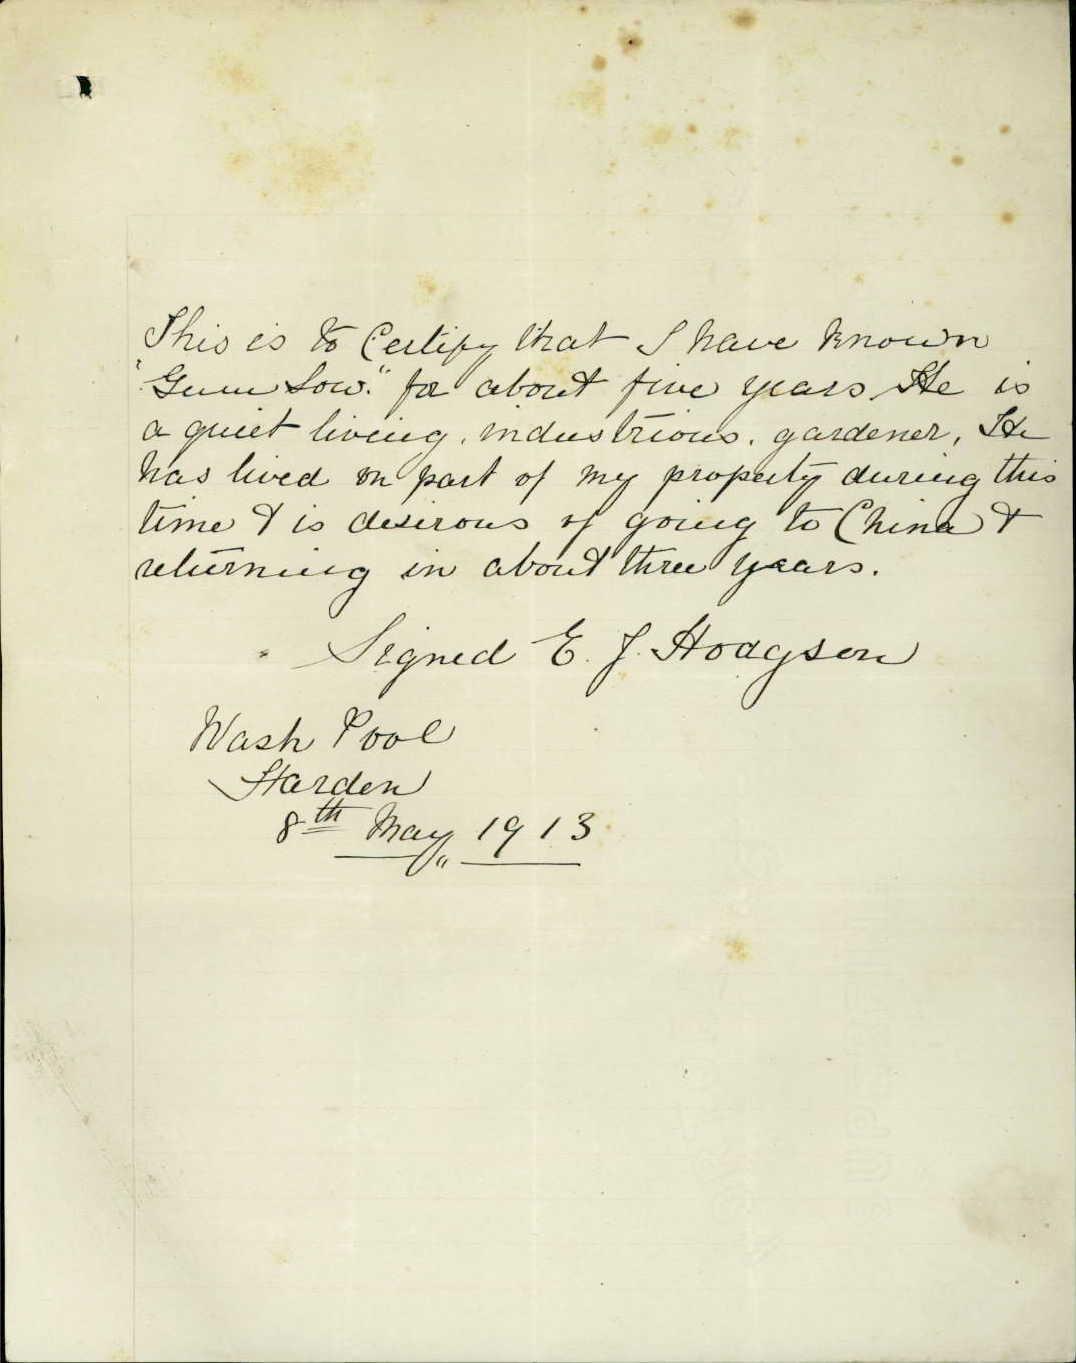 This is to Certify that I have known
"Gum Low." for about five years He is
a quiet living, industrious, gardener, He
has lived on part of my property during this
time & is desirous of going to China &
returning in about three years.
Signed E. J. Hodgson
Wash Pool
Harden
8th May, 1913